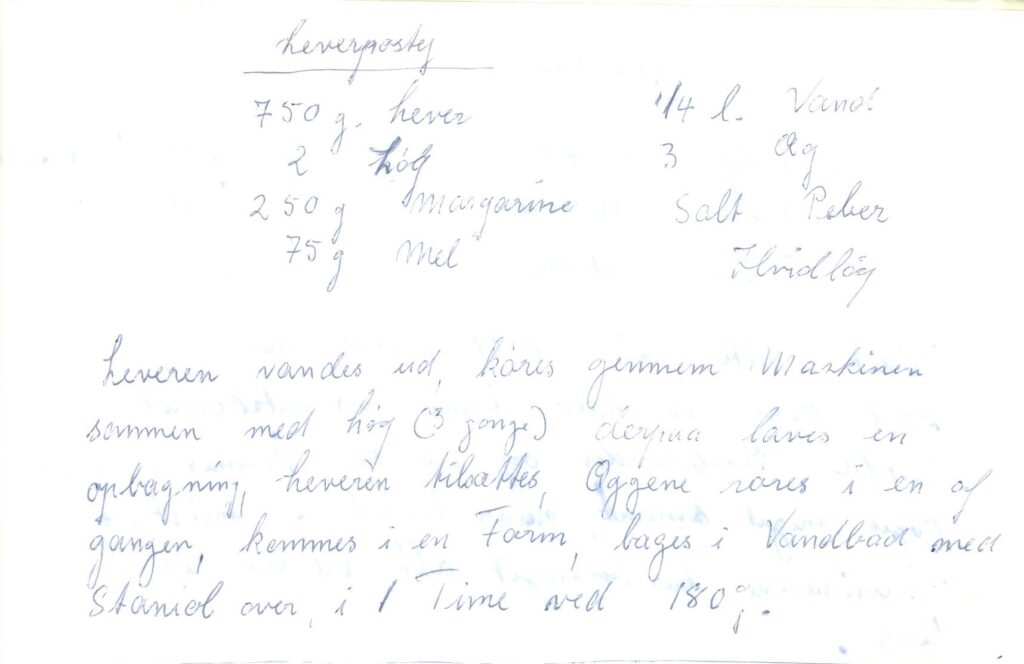 Leverpostej
750 g. Lever 1/4 l. Vand
2 Løg 3 Æg
250 g Margarine Salt Peber
75 g Mel Hvidløg
Leveren vandes ud, køres gennem Maskinen
sammen med Løg (3 gange) derpaa laves en
opbagning, Leveren tilsættes, Æggene røres i en af
gangen, kommes i en Form, bages i Vandbad med
Staniol over, i 1 Time ved 180°.